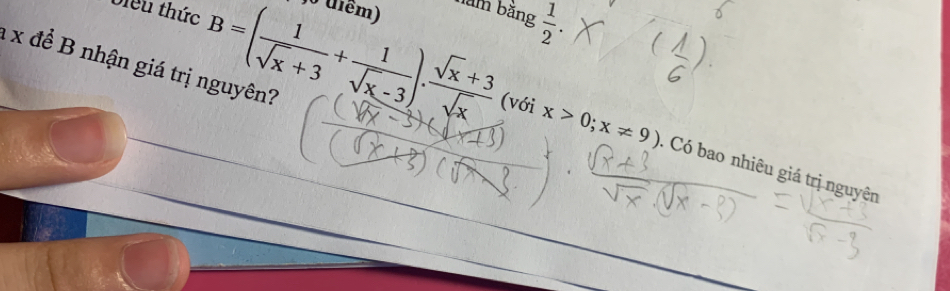 điểm)
bằng $\frac{1}{2}$. X
6
$\left(\frac{1}{6}\right)$.
thức $B = \left(\frac{1}{\sqrt{x}+3} + \frac{1}{\sqrt{x}-3}\right) \cdot \frac{\sqrt{x}+3}{\sqrt{x}}$ (với $x > 0; x \neq 9$). Có bao nhiêu giá trị nguyên
x để B nhận giá trị nguyên?
$\left(\frac{(\sqrt{x}-3)(\sqrt{x}+3)}{(\sqrt{x}+3)(\sqrt{x}-3)}\right) \cdot \frac{\sqrt{x}+3}{\sqrt{x}.(\sqrt{x}-3)} = \frac{\sqrt{x}+3}{\sqrt{x}-3}$